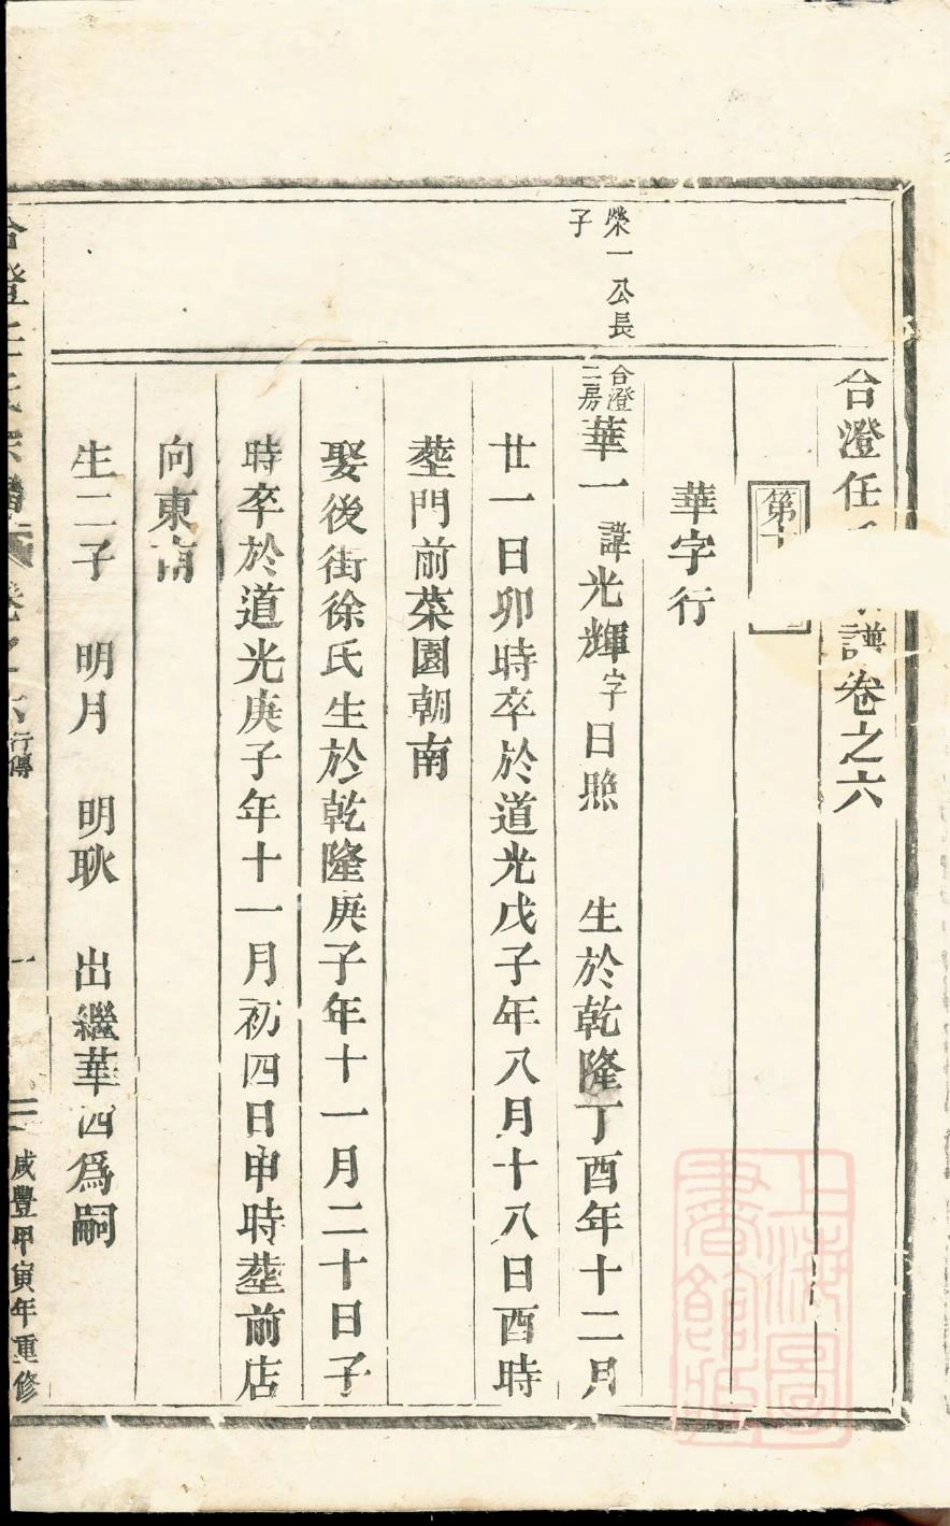 合澄任
譜卷之六
第十
華字行
榮一公長
子
合澄
二房
華一 諱光輝字日㷖 生於乾隆丁酉年十二月
廿一日卯時卒於道光戊子年八月十八日酉時
塟門前菜園朝南
娶後街徐氏生於乾隆庚子年十一月二十日子
時卒於道光庚子年十一月初四日申時塟前店
向東南
生二子 明月 明耿 出繼華四爲嗣
合澄任氏宗譜 卷之六 行傳 一 咸豐甲寅年重修
上海圖書館藏